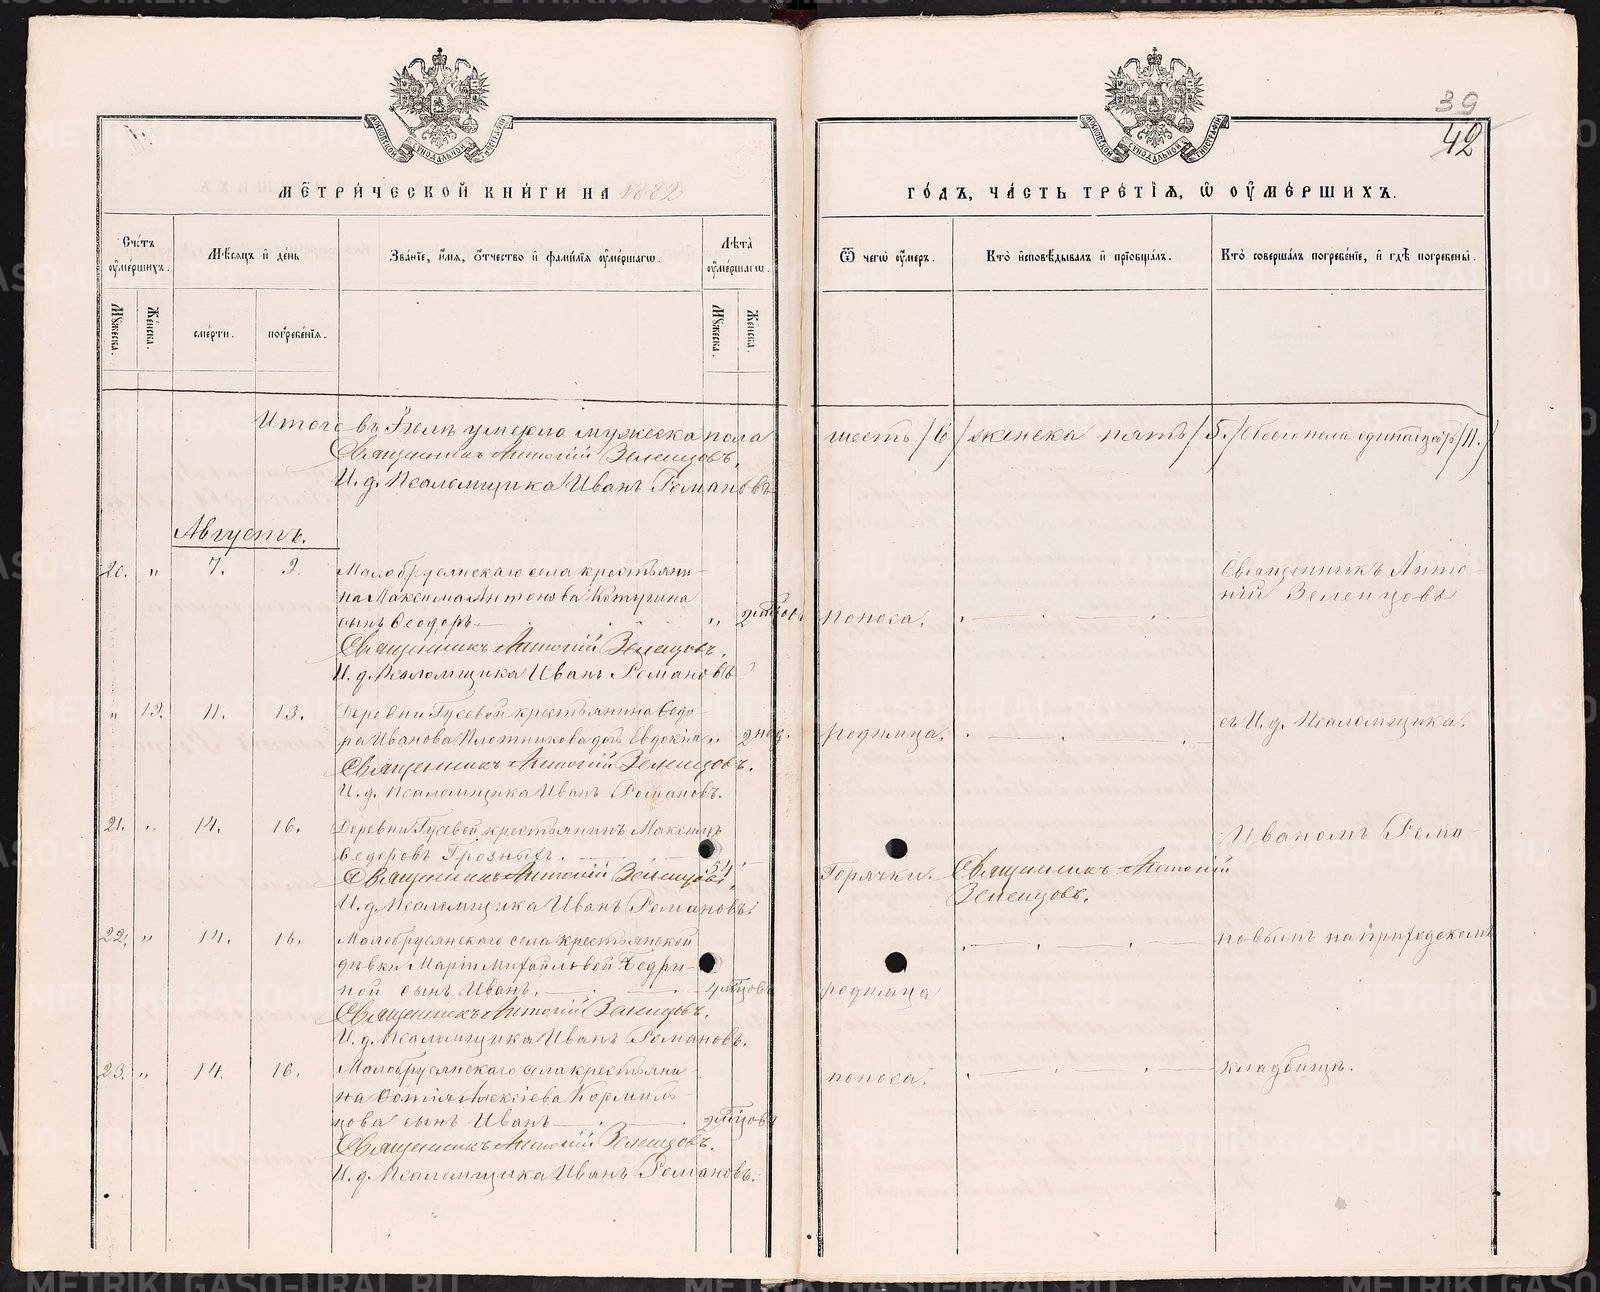 39
42
МЕТРИЧЕСКОЙ КНИГИ НА 1882
ГОДЪ, ЧАСТЬ ТРЕТІЯ, Ѡ ОУМЕРШИХЪ.
Счетъ оумершихъ.
Мѣсяцъ и день
Званіе, имя, отчество и фамилія оумершагѡ.
Лѣта оумершагѡ.
Ѿ чегѡ оумеръ.
Кто исповѣдывалъ и пріобщалъ.
Кто совершалъ погребеніе, и гдѣ погребены.
Мужеска.
Женска.
смерти.
погребенія.
Мужеска.
Женска.
Итого въ Іюлѣ умерло мужеска пола шесть /6/ женска пять /5./ обоего пола одинадцать /11./
Священникъ Антоній Зеленцовъ.
И. д. Псаломщика Иванъ Романовъ
Августъ.
20. " 7. 9. Малобрусянскаго села крестьяни-
на Максима Антонова Котугина
сынъ Ѳеодоръ " 2 мѣсяц. поноса.
Священникъ Антоній Зеленцовъ
Священникъ Антоній Зеленцовъ.
И. д. Псаломщика Иванъ Романовъ
" 12. 11. 13. Деревни Гусевой крестьянина Ѳедо-
ра Иванова Плотникова дочь Евдокія " 2 нед. родимца.
съ И. д. Псаломщика.
Священникъ Антоній Зеленцовъ.
И. д. Псаломщика Иванъ Романовъ.
21. " 14. 16. Деревни Гусевой крестьянинъ Максимъ
Ѳедоровъ Грозныхъ. 54 Горячки. Священникъ Антоній Зеленцовъ.
Иваномъ Рома-
Священникъ Антоній Зеленцовъ.
И. д. Псаломщика Иванъ Романовъ.
22. " 14. 16. Малобрусянскаго села крестьянской
дѣвки Маріи Михайловой
ной сынъ Иванъ. 4 мѣсяцовъ родимца
новымъ на приходскомъ
Священникъ Антоній Зеленцовъ.
И. д. Псаломщика Иванъ Романовъ.
23. " 14. 16. Малобрусянскаго села крестьяни-
на Ѳотія Алексіева Кормиль-
цова сынъ Иванъ 2 мѣсяцовъ поноса.
кладбищѣ.
Священникъ Антоній Зеленцовъ.
И. д. Псаломщика Иванъ Романовъ.
METRIKI.GASO-URAL.RU